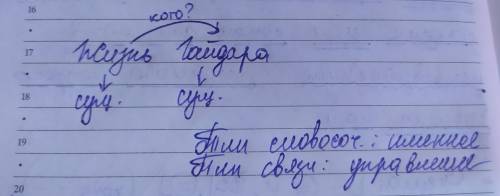 16
кого?
17 Жизнь Гайдара
18 сущ. сущ.
19 Тип словосоч.: именное
Тип связи: управление
20